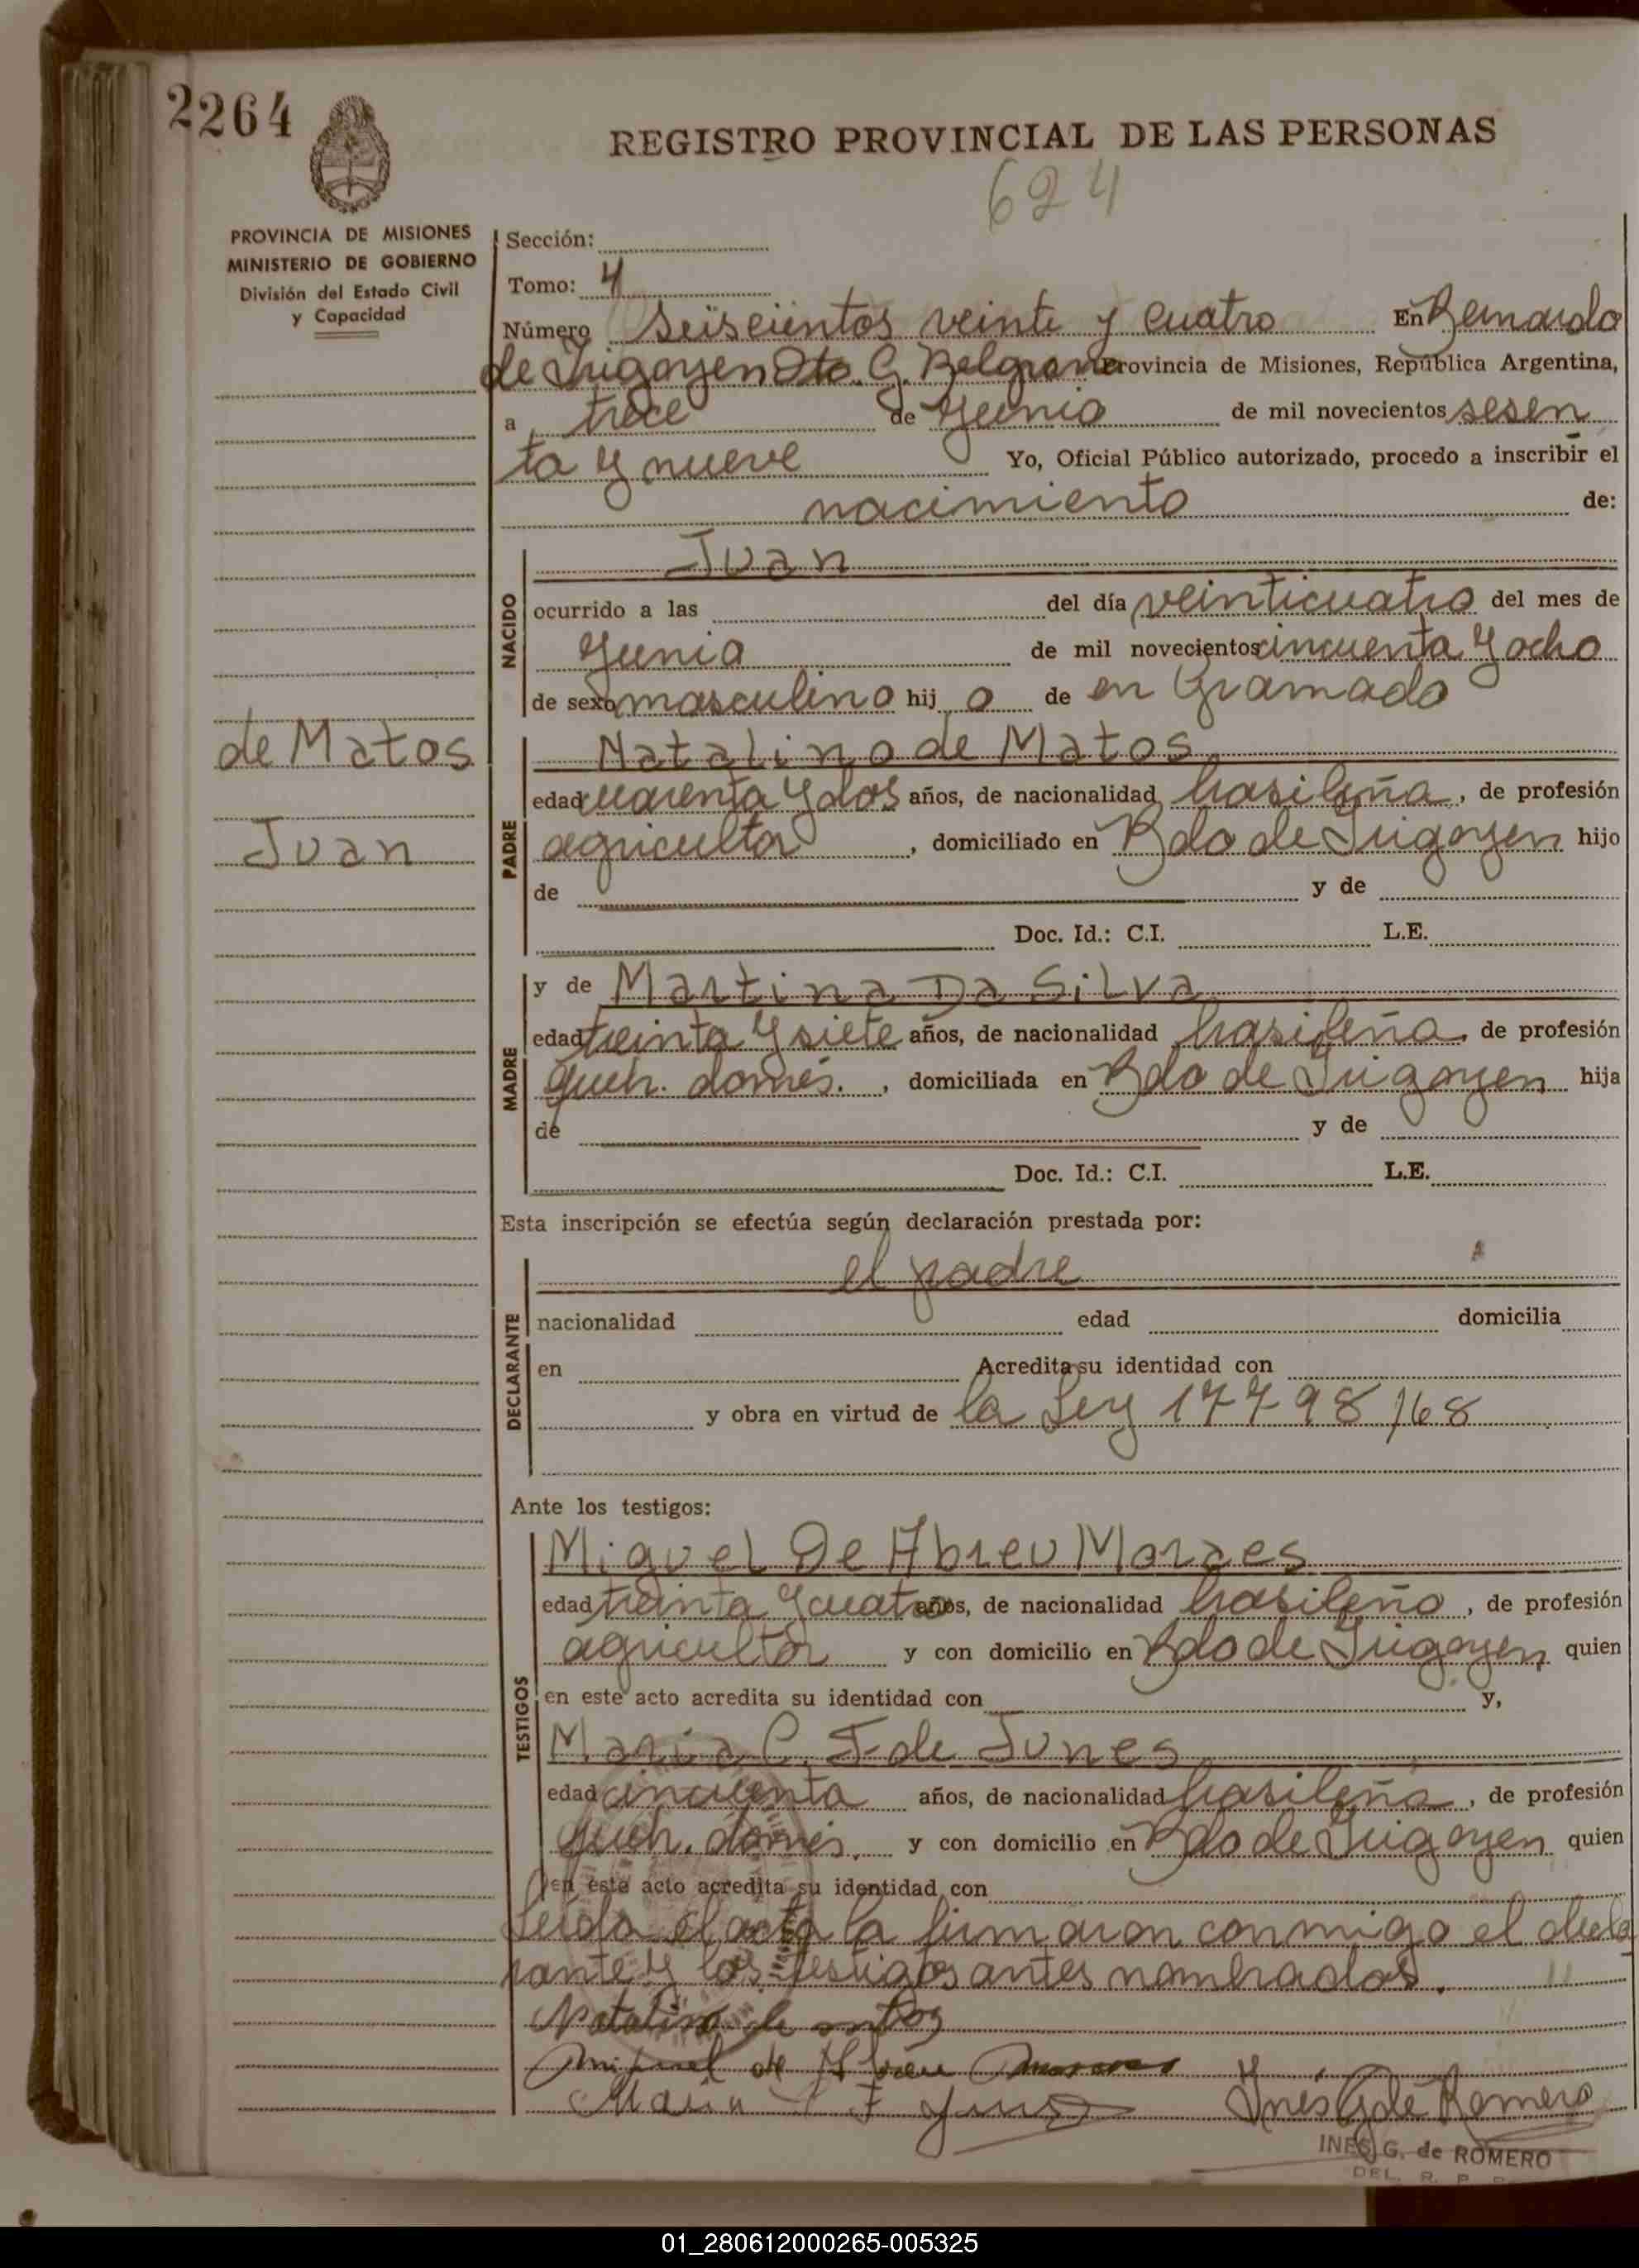 2264
REGISTRO PROVINCIAL DE LAS PERSONAS
624
PROVINCIA DE MISIONES
MINISTERIO DE GOBIERNO
División del Estado Civil
y Capacidad
Sección:
Tomo: 4
Número Seiscientos veinte y cuatro En Bernardo
de Irigoyen Dto. G. Belgrano Provincia de Misiones, República Argentina,
a trece de Junio de mil novecientos sesen
ta y nueve Yo, Oficial Público autorizado, procedo a inscribir el
nacimiento de:
NACIDO
Juan
ocurrido a las del día veinticuatro del mes de
Junio de mil novecientos cincuenta y ocho
de sexo masculino hij o de en Gramado
de Matos
Juan
PADRE
Natalino de Matos
edad cuarenta y dos años, de nacionalidad brasileña, de profesión
agricultor, domiciliado en Bdo de Irigoyen hijo
de y de
Doc. Id.: C.I. L.E.
MADRE
y de Martina Da Silva
edad treinta y siete años, de nacionalidad brasileña, de profesión
queh. domés., domiciliada en Bdo de Irigoyen hija
de y de
Doc. Id.: C.I. L.E.
Esta inscripción se efectúa según declaración prestada por:
DECLARANTE
el padre
nacionalidad edad domicilia
en Acredita su identidad con
y obra en virtud de la Ley 17798/68
Ante los testigos:
TESTIGOS
Miguel De Abreu Moraes
edad treinta y cuatro años, de nacionalidad brasileño, de profesión
agricultor y con domicilio en Bdo de Irigoyen quien
en este acto acredita su identidad con y,
Maria C. F. de Junes
edad cincuenta años, de nacionalidad brasileña, de profesión
queh. domés. y con domicilio en Bdo de Irigoyen quien
en este acto acredita su identidad con
Leída el acta la firmaron conmigo el decla
rante y los testigos antes nombrados.
Natalino de matos
Miguel de Abreu Moraes
Maria C F Junes
Inés G de Romero
INES G. de ROMERO
DEL. R. P.
01_280612000265-005325